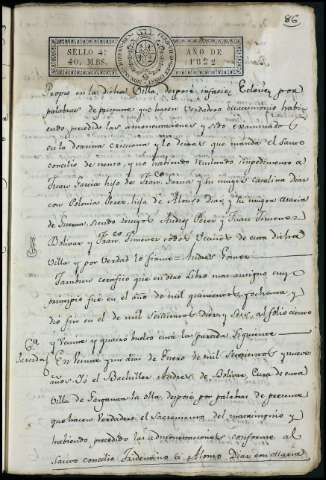 86
SELLO 4º
40. MRS.
AÑO DE
1822
Porque en la dicha Villa, despose in facie Eclesie, por
palabras de presente que hacen verdadero matrimonio habi
endo precedido las amonestaciones y sido examinados
en la doctrina cristiana y lo demas que manda el Santo
concilio de trento, y no habiendo resultado impedimento a
Juan Garcia hijo de Fran.co Garcia y su muger Carolina Diaz
con Polonia Perez hija de Alonso Diaz y su muger Maria
de siendo testigos Andres Perez y Juan Ximenez
Bolivar y Fran.co Ximenez todos Vecinos de esta dicha
Villa y por verdad lo firmé = Andres Gomez
Tambien certifico que en otro Libro mas antiguo cuyo
principio fue en el año de mil y
dio fin en el de mil Seiscientos Diez y seis, al folio ciento
y treinta y quatro buelto esta la partida Siguiente
Partida En Veinte y un dias de Enero de mil Seiscientos y nueve
años Yo el Bachiller Andres de Bolivar Cura de esta
Villa de la olla desposé por palabras de presente
que hacen Verdadero el Sacramento del matrimonio y
habiendo precedido las admonestaciones conforme al
Santo concilio Tridentino a Alonso Diaz con Maria